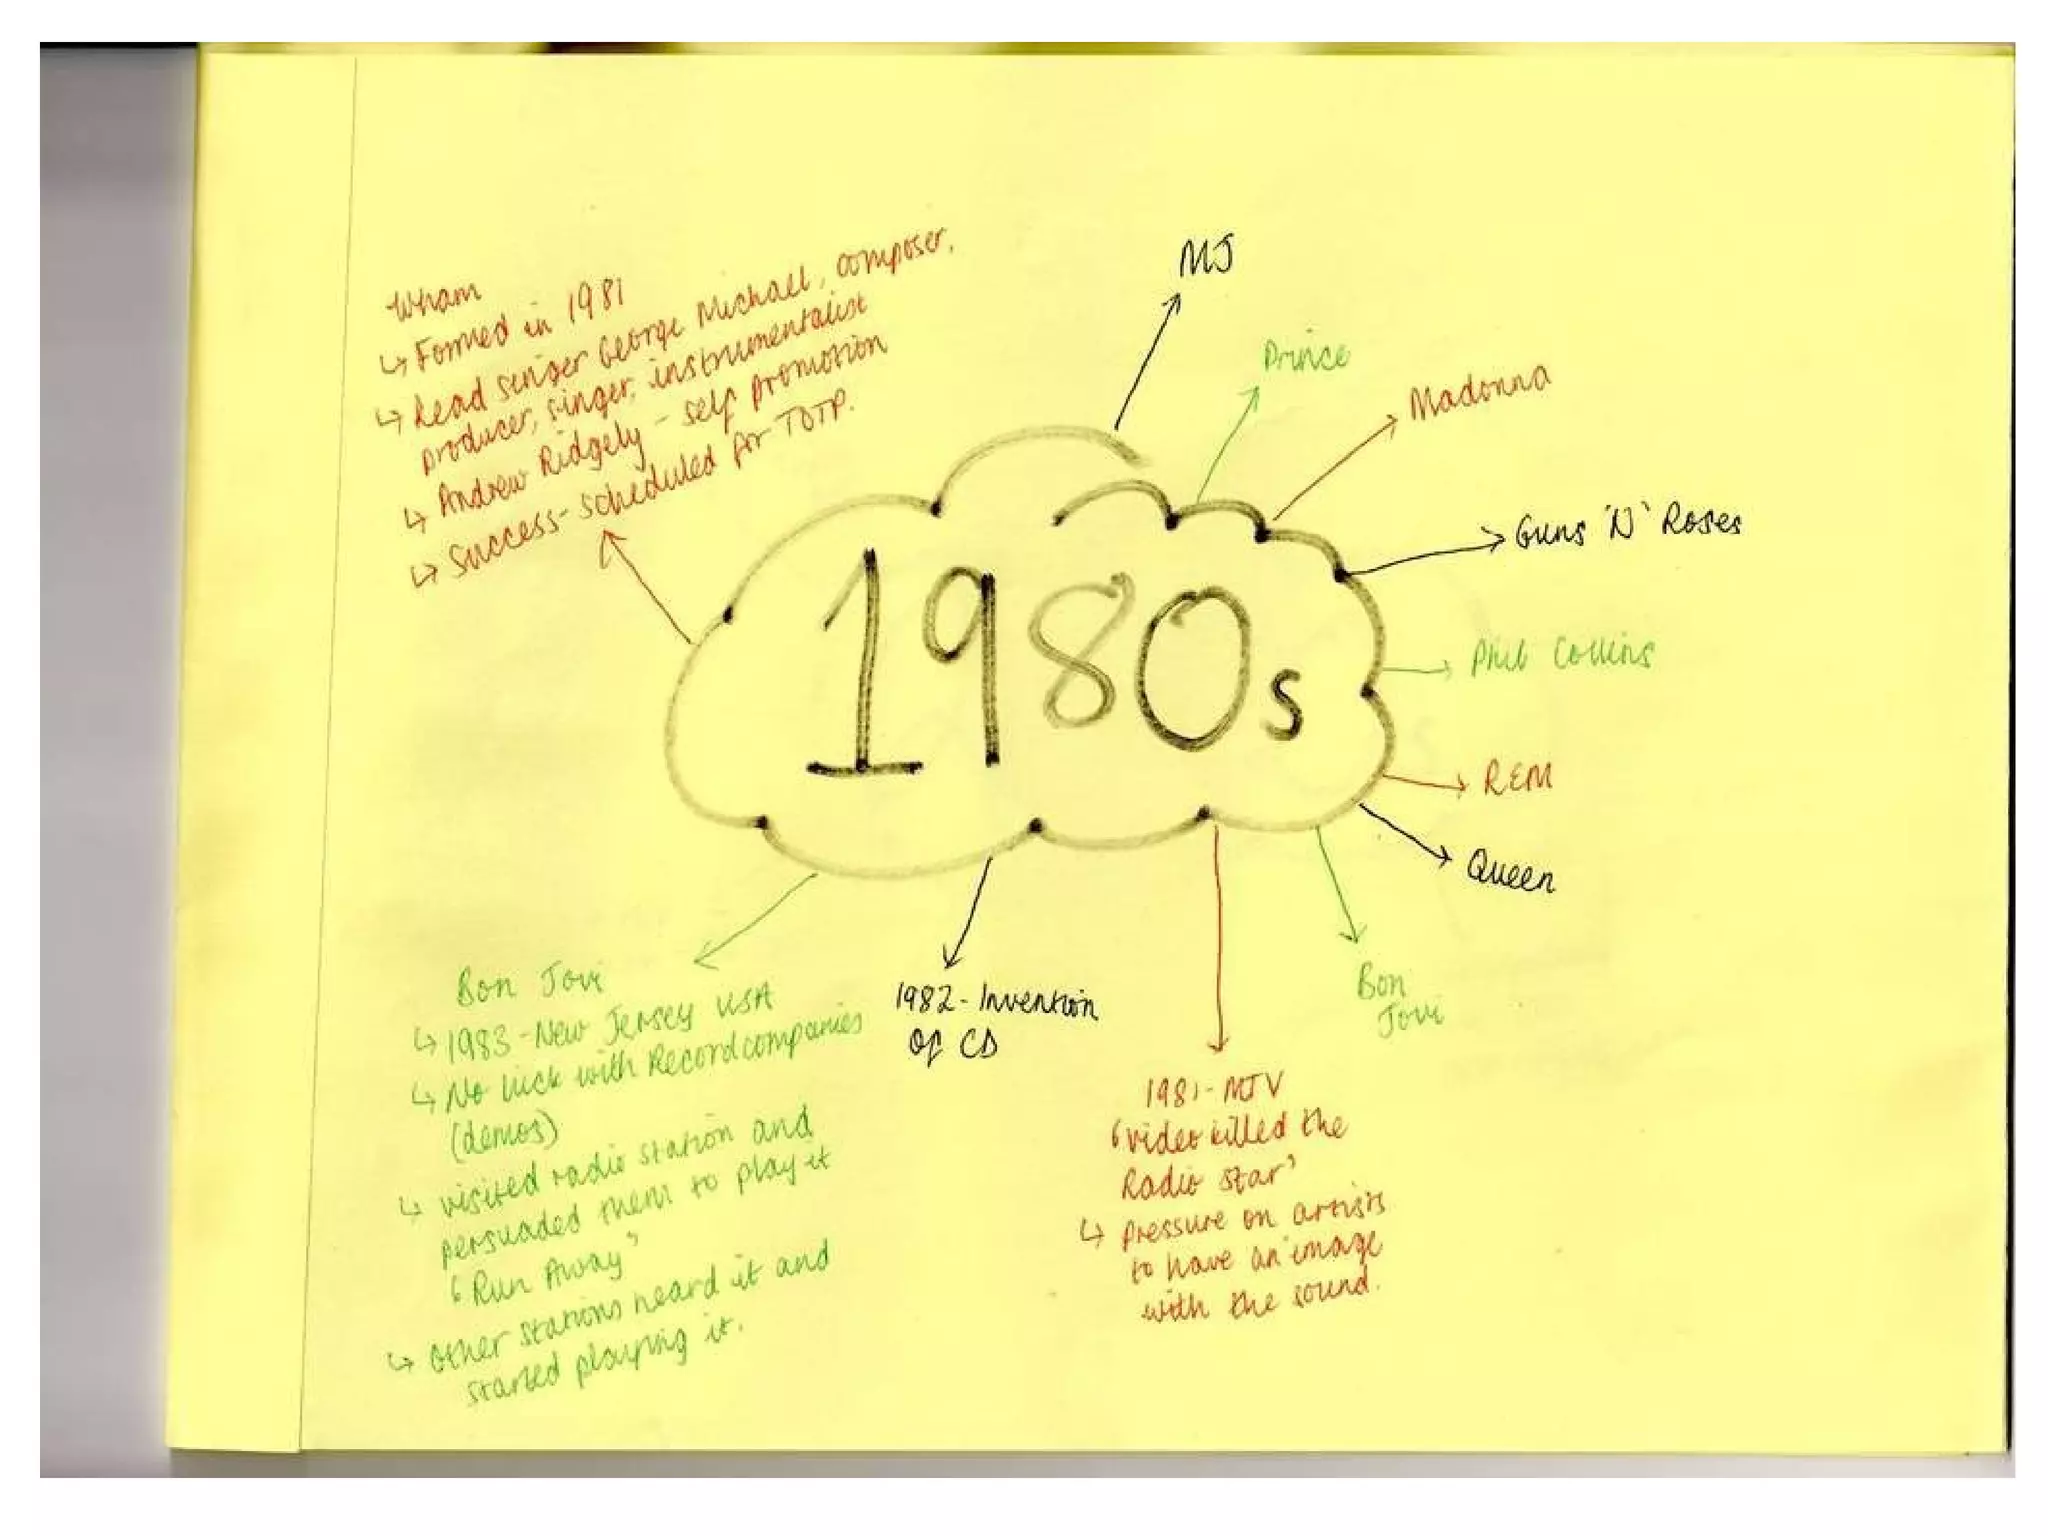 Wham
↳ Formed in 1981
↳ Lead singer George Michael, composer,
producer, singer, instrumentalist
↳ Andrew Ridgely - self promotion
↳ Success - scheduled for TOTP.
MJ
Prince
Madonna
Guns 'N' Roses
Phil Collins
REM
Queen
Bon
Jovi
1980s
1981 - MTV
'video killed the
Radio Star'
↳ pressure on artists
to have an image
with the sound.
1982 - Invention
Of CD
Bon Jovi
↳ 1983 - New Jersey USA
↳ No luck with Record companies
(demos)
↳ visited radio station and
persuaded them to play it
'Run Away'
↳ other stations heard it and
started playing it.